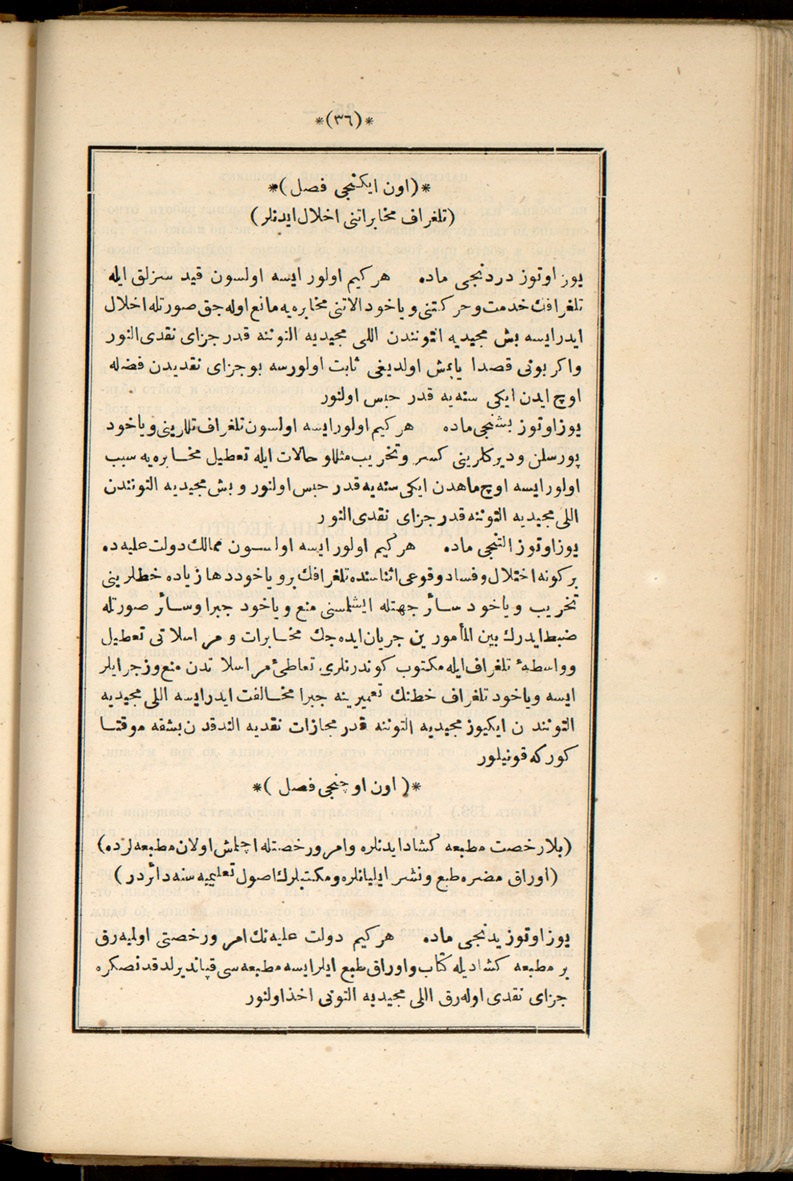 *(٣٦)*
*( اون ایکنجی فصل )*
(تلغراف مخابراتنی اخلال ایدنلر)
یوز اوتوز دردنجی ماده هرکیم اولور ایسه اولسون قید سزلق ایله
تلغرافك خدمت و حرکتنی ویاخود الاتنی مخابره یه مانع اوله جق صورتله اخلال
ایدرایسه بش مجیدیه التونندن اللی مجیدیه التوننه قدر جزای نقدی النور
واکر بونی قصدا یاپمش اولدیغی ثابت اولورسه بوجزای نقدیدن فضله
اوچ ایدن ایکی سنه یه قدر حبس اولنور
یوزاوتوز بشنجی ماده هرکیم اولورایسه اولسون تلغراف تللرینی ویاخود
پورسلن ودیرکلرینی کسر وتخریب مثللو حالات ایله تعطیل مخابره یه سبب
اولورایسه اوچ ماهدن ایکی سنه یه قدر حبس اولنور و بش مجیدیه التونندن
اللی مجیدیه التوننه قدر جزای نقدی النور
یوزاوتوز التنجی ماده هرکیم اولور ایسه اولسون ممالك دولت علیه ده
برکونه اختلال وفساد وقوعی اثناسنده تلغرافك بر ویاخود دها زیاده خطلرینی
تخریب ویاخود سائر جهتله ایشلمسنی منع ویاخود جبرا وسائر صورتله
ضبط ایدرك بین المأمورین جریان ایده جك مخابرات و مراسلاتی تعطیل
وواسطهٔ تلغراف ایله مکتوب کوندرنلری تعاطئ مراسلاتدن منع وزجر ایلر
ایسه ویاخود تلغراف خطنك تعمیرینه جبرا مخالفت ایدرایسه اللی مجیدیه
التونندن ایکیوز مجیدیه التوننه قدر مجازات نقدیه الندقدن بشقه موقتا
کورکه قونیلور
*( اون اوچنجی فصل )*
(بلارخصت مطبعه کشاد ایدنلره وامر ورخصتله اچلمش اولان مطبعه لرده)
(اوراق مضره طبع ونشر ایلیانلره ومکتبلرك اصول تعلیمیه سنه دائردر)
یوزاوتوز یدنجی ماده هرکیم دولت علیه نك امر ورخصتی اولمیه رق
بر مطبعه کشادیله کتاب واوراق طبع ایلرایسه مطبعه سی قپاندیرلدقدنصکره
جزای نقدی اوله رق اللی مجیدیه التونی اخذ اولنور